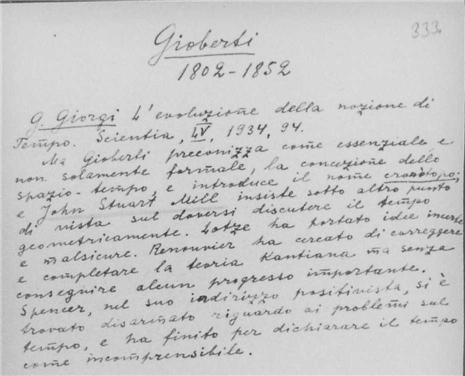 333.
Gioberti
1802-1852
G. Giorgi L'evoluzione della nozione di
Tempo. Scientia, LV, 1934, 94.
Ma Gioberti preconizza come essenziale e
non solamente formale, la concezione dello
spazio-tempo, e introduce il nome cronotopo;
e John Stuart Mill insiste sotto altro punto
di vista sul doversi discutere il tempo
geometricamente. Lotze ha portato idee incerte
e malsicure. Renouvier ha cercato di correggere
e completare la teoria Kantiana ma senza
conseguire alcun progresso importante.
Spencer, nel suo indirizzo positivista, si è
trovato disarmato riguardo ai problemi sul
tempo, e ha finito per dichiarare il tempo
come incomprensibile.